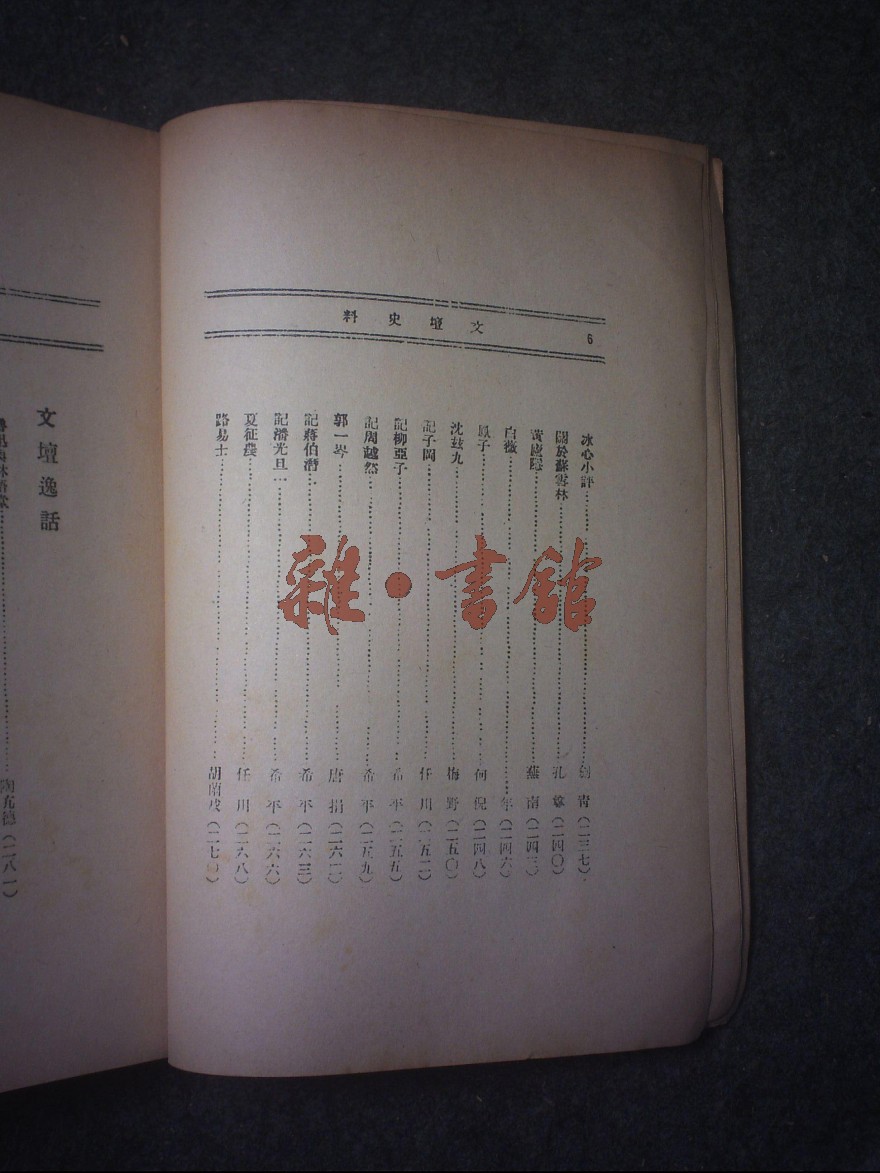 文壇史料
6
冰心小評……劍青(二三七)
關於蘇雪林……孔
黃廬隱……燕南(二四三)
白薇……年(二四六)
鳳子……何倪(二四八)
沈玆九……梅野(二五〇)
記子岡……任川(二五二)
記柳亞子……希平(二五五)
記周越然……希平(二五九)
郭一岑……唐捐
記蔣伯潛……希平(二六三)
記潘光旦……希平(二六六)
夏征農……任川(二六八)
路易士……胡蘭成(二七〇)
文壇逸話
陶亢德(二八一)
雜·書館